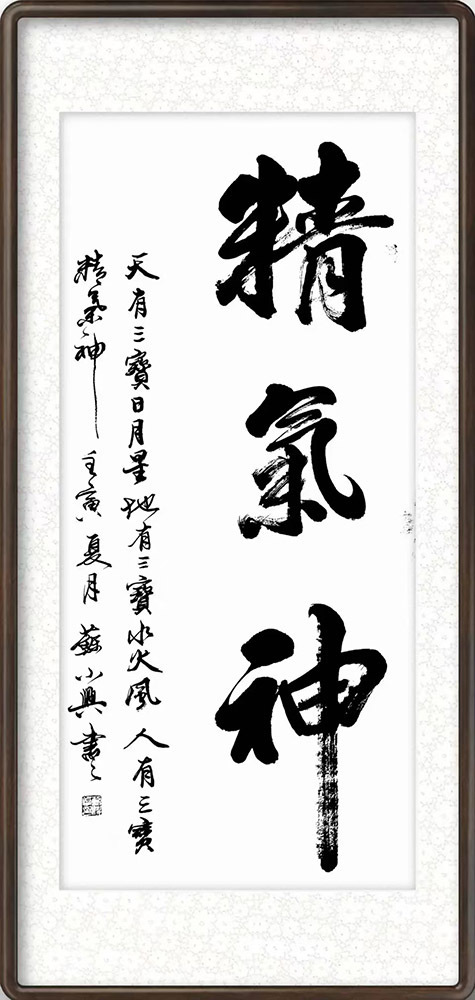 精氣神
天有三寶日月星地有三寶水火風人有三寶
精氣神壬寅夏月蘇小興書之